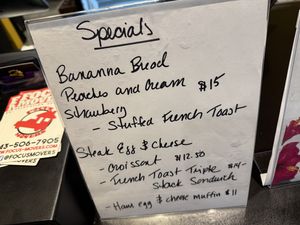 Specials
Bananna Bread
Peaches and Cream $15
Strawberry
- Stuffed French Toast
Steak Egg & Cheese
- Croissant $12.50
- French Toast Triple $14-
Stack Sandwich
- Ham egg & cheese muffin $11
43-506-7905
FOCUS-MOVERS.COM
@FOCUSMOVERS